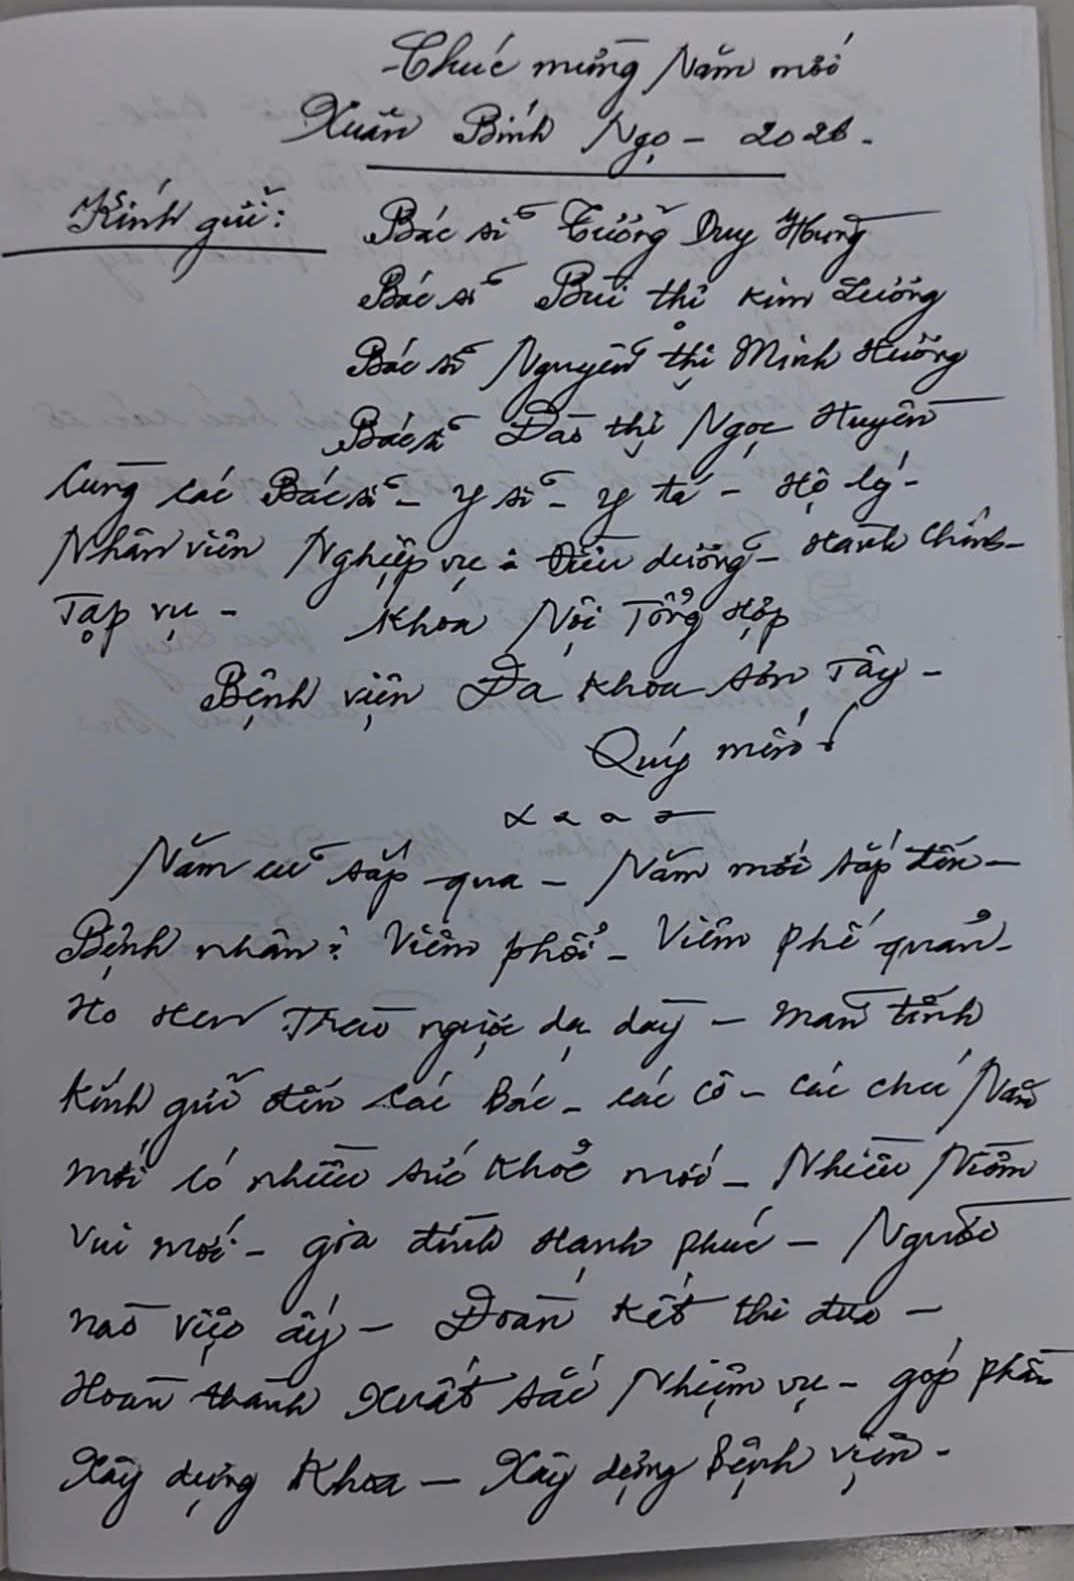 Chúc mừng Năm mới
Xuân Bính Ngọ - 2026.
Kính gửi:
Bác sĩ Tưởng Duy Hưng
Bác sĩ Bùi thị Kim Lương
Bác sĩ Nguyễn thị Minh Hường
Bác sĩ Đào thị Ngọc Huyền
Cùng các Bác sĩ - Y sĩ - Y tá - Hộ lý -
Nhân viên Nghiệp vụ: Điều dưỡng - Hành Chính -
Tạp vụ - Khoa Nội Tổng Hợp
Bệnh viện Đa Khoa Sơn Tây -
Quý mến!
Năm cũ sắp qua - Năm mới sắp đến -
Bệnh nhân: Viêm phổi - Viêm phế quản -
Ho Hen Trào ngược dạ dày - mãn tính
Kính gửi đến các Bác - các cô - các chú Năm
mới có nhiều sức khoẻ mới - Nhiều Niềm
vui mới - gia đình Hạnh phúc - Người
nào việc ấy - Đoàn kết thi đua -
Hoàn thành Xuất sắc Nhiệm vụ - góp phần
Xây dựng Khoa - Xây dựng Bệnh viện -